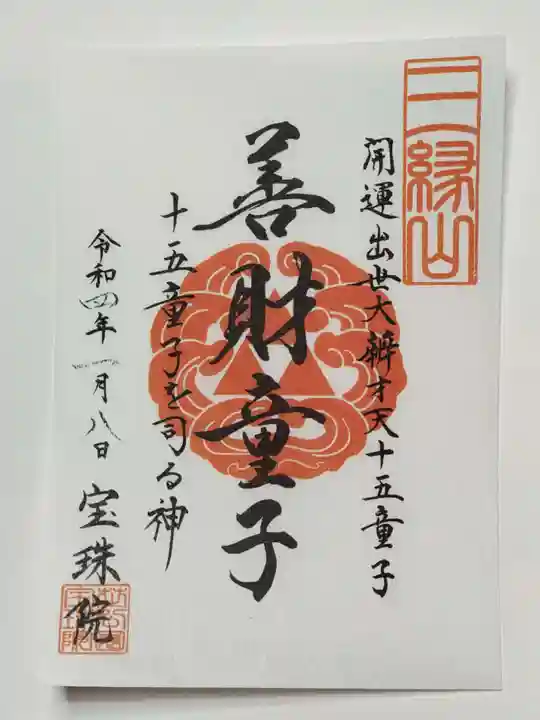 三縁山
開運出世大辨才天十五童子
善財童子
十五童子を司る神
令和四年一月八日
宝珠院